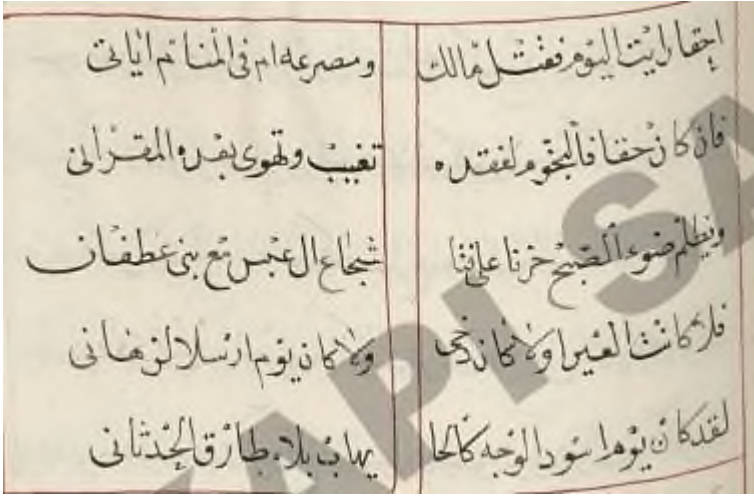 احقا رايت اليوم فقتل مالك ومصرعه ام في المنام اياتى
فان كان حقا فالنجوم لفقده تغيب وتهوى بعده القمراني
ويظلم ضوء الصبح حزنا على شجاع ال عبس مع بنى عطفان
فلا كانت الغبرا ولا كان ولا كان يوم ارسلا لرهانى
لقد كان يوما اسود الوجه كالحا يهاب بلاه طارق الحدثانى
SA
API